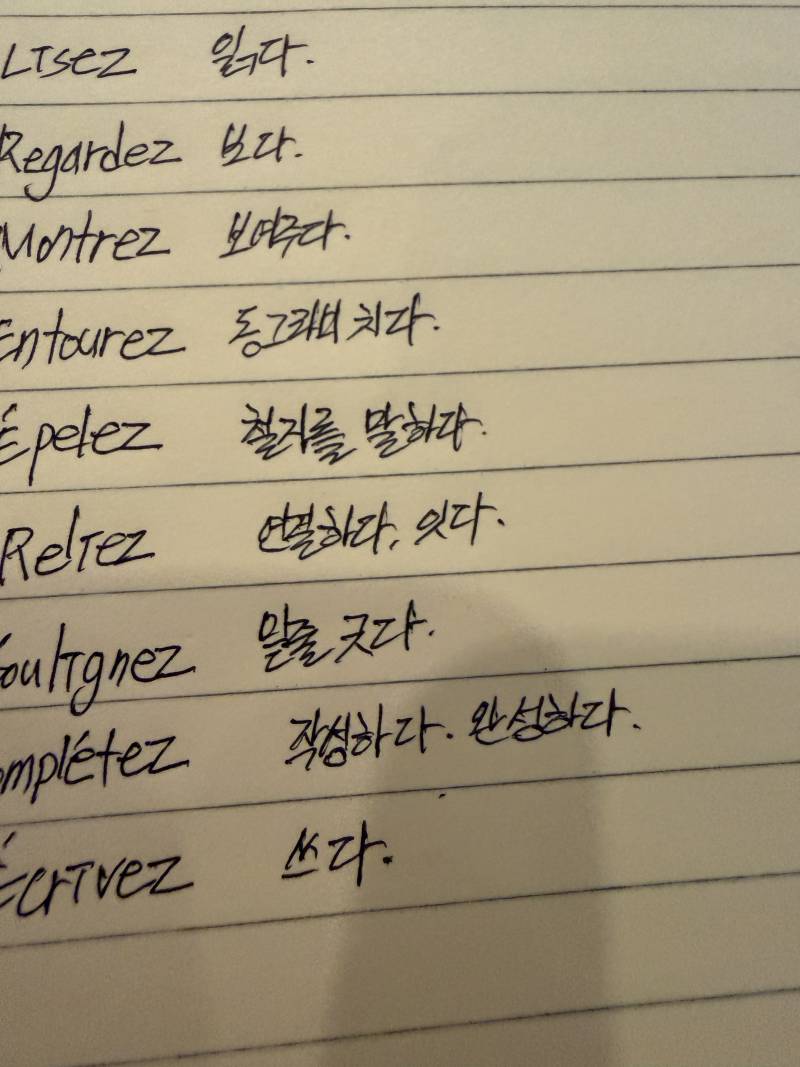 Lisez 읽다.
Regardez 보다.
Montrez 보여주다.
Entourez 동그라미 치다.
Épelez 철자를 말하다.
Reliez 연결하다, 잇다.
oulignez 밑줄 긋다.
omplétez 작성하다. 완성하다.
Écrivez 쓰다.